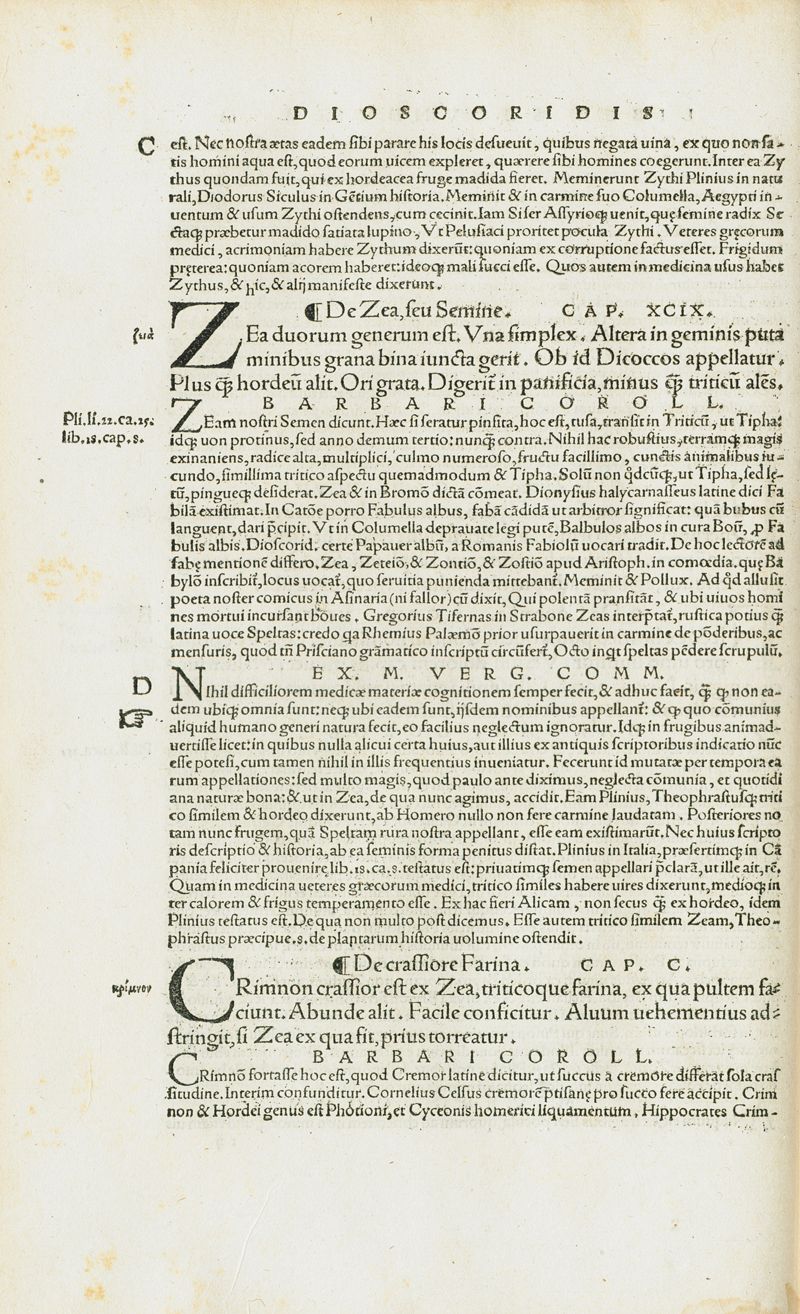 DIOSCORIDIS
C est. Nec nostra ætas eadem sibi parare his locis desueuit, quibus negata uina, ex quo non sa-
tis homini aqua est, quod eorum uicem expleret, quærere sibi homines coegerunt. Inter ea Zy
thus quondam fuit, qui ex hordeacea fruge madida fieret. Meminerunt Zythi Plinius in natu
rali, Diodorus Siculus in Gẽtium historia. Meminit & in carmine suo Columella, Aegypti in-
uentum & usum Zythi ostendens, cum cecinit. Iam Siser Assyrioq; uenit, quę semine radix Se
ctaq; præbetur madido satiata lupino, Vt Pelusiaci proritet pocula Zythi. Veteres gręcorum
medici, acrimoniam habere Zythum dixerũt: quoniam ex corruptione factus esset. Frigidum
pręterea: quoniam acorem haberet: ideoq; mali succi esse. Quos autem in medicina usus habet
Zythus, & hic, & alij manifeste dixerunt.
¶ De Zea, seu Semine. CAP. XCIX.
ζειά
ZEa duorum generum est. Vna simplex. Altera in geminis puta
minibus grana bina iuncta gerit. Ob id Dicoccos appellatur.
Plus q̃ hordeũ alit. Ori grata. Digerit̃ in panificia, minus q̃ triticũ alẽs.
BARBARI COROLL.
Pli. li. 22. ca. 25.
lib. 18. cap. 8.
ZEam nostri Semen dicunt. Hæc si seratur pinsita, hoc est, tusa, transit in Triticũ, ut Tipha:
idq; uon protinus, sed anno demum tertio: nunq̃ contra. Nihil hac robustius, terramq; magis
exinaniens, radice alta, multiplici, culmo numeroso, fructu facillimo, cunctis animalibus iu-
cundo, simillima tritico aspectu quemadmodum & Tipha. Solũ non q̃dcũq;, ut Tipha, sed lę-
tũ, pingueq; desiderat. Zea & in Bromõ dictã cõmeat. Dionysius halycarnasseus latine dici Fa
bilã existimat. In Catõe porro Fabulus albus, fabã cãdidã ut arbitror significat: quã bubus cũ
languent, dari p̃cipit. Vt in Columella deprauate legi putẽ, Balbulos albos in cura Boũ, ꝓ Fa
bulis albis. Dioscorid. certe Papauer albũ, a Romanis Fabiolũ uocari tradit. De hoc lectorẽ ad
fabę mentionẽ differo. Zea, Zeteiõ, & Zontiõ, & Zostiõ apud Aristoph. in comœdia. quę Ba
bylõ inscribit̃, locus uocat̃, quo seruitia punienda mittebant̃. Meminit & Pollux. Ad q̃d allusit
poeta noster comicus in Asinaria (ni fallor) cũ dixit, Qui polentã pransitãt, & ubi uiuos homi
nes mortui incursant boues. Gregorius Tifernas in Strabone Zeas interp̃tat̃, rustica potius q̃
latina uoce Speltas: credo qa Rhemius Palæmõ prior usurpauerit in carmine de põderibus, ac
mensuris, quod tñ Prisciano grãmatico inscriptũ circũfert̃, Octo inqt speltas pẽdere scrupulũ.
EX. M. VERG. COMM.
D NIhil difficiliorem medicæ materiæ cognitionem semper fecit, & adhuc facit, q̃ ꝙ non ea-
dem ubiq; omnia sunt: neq; ubi eadem sunt, ijsdem nominibus appellant̃: & ꝙ quo cõmunius
aliquid humano generi natura fecit, eo facilius neglectum ignoratur. Idq; in frugibus animad-
uertisse licet: in quibus nulla alicui certa huius, aut illius ex antiquis scriptoribus indicatio nũc
esse potest, cum tamen nihil in illis frequentius inueniatur. Fecerunt id mutatæ per tempora ea
rum appellationes: sed multo magis, quod paulo ante diximus, neglecta cõmunia, et quotidi
ana naturæ bona: & ut in Zea, de qua nunc agimus, accidit. Eam Plinius, Theophrastusq; triti
co similem & hordeo dixerunt, ab Homero nullo non fere carmine laudatam. Posteriores no
tam nunc frugem, quã Speltam rura nostra appellant, esse eam existimarũt. Nec huius scripto
ris descriptio & historia, ab ea seminis forma penitus distat. Plinius in Italia, præsertimq; in Cã
pania feliciter prouenire lib. 18. ca. 8. testatus est: priuatimq; semen appellari p̃clarã, ut ille ait, rẽ.
Quam in medicina ueteres græcorum medici, tritico similes habere uires dixerunt, medioq; in
ter calorem & frigus temperamento esse. Ex hac fieri Alicam, non secus q̃ ex hordeo, idem
Plinius testatus est. De qua non multo post dicemus. Esse autem tritico similem Zeam, Theo-
phrastus præcipue. 8. de plantarum historia uolumine ostendit.
¶ De crassiore Farina. CAP. C.
κρίμνον
CRimnon crassior est ex Zea, triticoque farina, ex qua pultem fa-
ciunt. Abunde alit. Facile conficitur. Aluum uehementius ad-
stringit, si Zea ex qua fit, prius torreatur.
BARBARI COROLL.
CRimnõ fortasse hoc est, quod Cremor latine dicitur, ut succus a cremore differat sola cras
situdine. Interim confunditur. Cornelius Celsus cremorẽ p̃tisanę pro succo fere accipit. Crim
non & Hordei genus est Photioni, et Cyceonis homerici liquamentum. Hippocrates Crim-